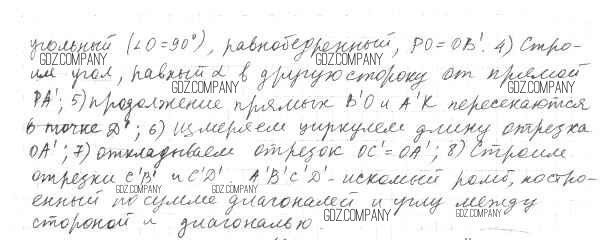 угольный (∠O=90°), равнобедренный, PO=OB'. 4) Стро-
им угол, равный α в другую сторону от прямой
PA'; 5) продолжение прямых B'O и A'K пересекаются
в точке D'; 6) Измеряем циркулем длину отрезка
OA'; 7) откладываем отрезок OC'=OA'; 8) Строим
отрезки C'B' и C'D'. A'B'C'D'- искомый ромб, постро-
енный по сумме диагоналей и углу между
стороной и диагональю.
GDZ.COMPANY
GDZ.COMPANY
GDZ.COMPANY
GDZ.COMPANY
GDZ.COMPANY
GDZ.COMPANY
GDZ.COMPANY
GDZ.COMPANY
GDZ.COMPANY
GDZ.COMPANY